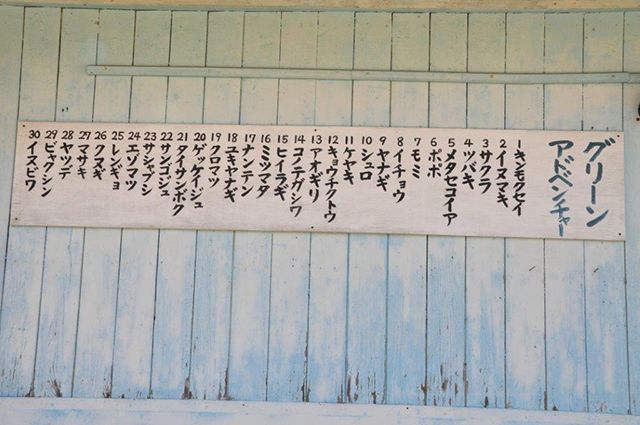 グリーン
アドベンチャー
1 キンモクセイ
2 イヌマキ
3 サクラ
4 ツバキ
5 メタセコイア
6 ポポ
7 モミ
8 イチョウ
9 ヤナギ
10 シュロ
11 ケヤキ
12 キョウチクトウ
13 アオギリ
14 コノテガシワ
15 ヒイラギ
16 ミツマタ
17 ナンテン
18 ユキヤナギ
19 クロマツ
20 ゲッケイジュ
21 タイサンボク
22 サンゴジュ
23 サシャブシ
24 エゾマツ
25 レンギョ
26 クヌギ
27 マサキ
28 ヤツデ
29 ビャクシン
30 イスビワ